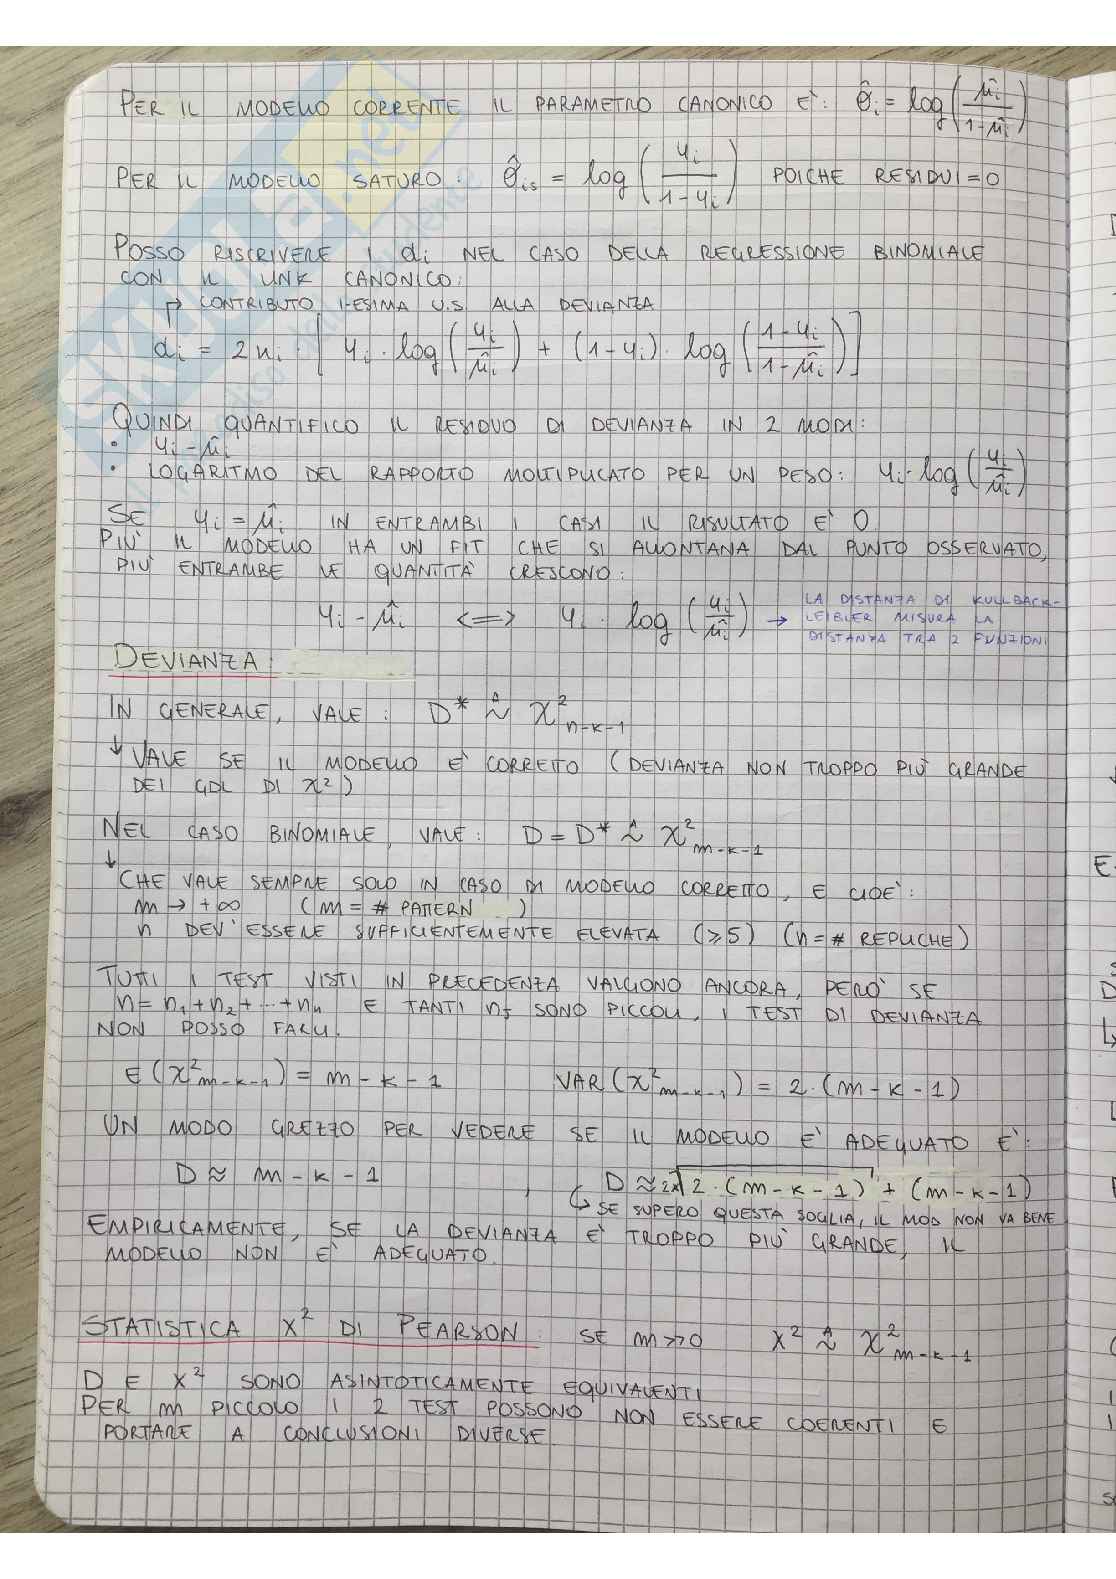 PER IL MODELLO CORRENTE IL PARAMETRO CANONICO E': θ̂i = log(μ̂i / 1-μ̂i)
PER IL MODELLO SATURO: θ̂is = log(yi / 1-yi) POICHE RESIDUI=0
POSSO RISCRIVERE I di NEL CASO DELLA REGRESSIONE BINOMIALE
CON IL LINK CANONICO:
↱ CONTRIBUTO I-ESIMA U.S. ALLA DEVIANZA
di = 2ni · [yi · log(yi / μ̂i) + (1-yi) · log(1-yi / 1-μ̂i)]
QUINDI QUANTIFICO IL RESIDUO DI DEVIANZA IN 2 MODI:
• yi - μ̂i
• LOGARITMO DEL RAPPORTO MOLTIPLICATO PER UN PESO: yi · log(yi / μ̂i)
SE yi = μ̂i IN ENTRAMBI I CASI IL RISULTATO E' 0
PIÙ IL MODELLO HA UN FIT CHE SI ALLONTANA DAL PUNTO OSSERVATO,
PIÙ ENTRAMBE LE QUANTITÀ CRESCONO:
yi - μ̂i <=> yi · log(yi / μ̂i) → LA DISTANZA DI KULLBACK-
LEIBLER MISURA LA
DISTANZA TRA 2 FUNZIONI
DEVIANZA:
IN GENERALE, VALE: D* ∼ᴬ χ²n-k-1
↓ VALE SE IL MODELLO E' CORRETTO (DEVIANZA NON TROPPO PIÙ GRANDE
DEI GDL DI χ²)
NEL CASO BINOMIALE, VALE: D = D* ∼ᴬ χ²m-k-1
↓ CHE VALE SEMPRE SOLO IN CASO DI MODELLO CORRETTO, E CIOE':
m → +∞ (m = # PATTERN )
n DEV'ESSERE SUFFICIENTEMENTE ELEVATA (≥5) (n = # REPLICHE)
TUTTI I TEST VISTI IN PRECEDENZA VALGONO ANCORA, PERO' SE
n = n1 + n2 + ... + nn E TANTI nj SONO PICCOLI, I TEST DI DEVIANZA
NON POSSO FARLI.
E(χ²m-k-1) = m-k-1 VAR(χ²m-k-1) = 2·(m-k-1)
UN MODO GREZZO PER VEDERE SE IL MODELLO E' ADEQUATO E':
D ≈ m-k-1 D ≈ 2x√2·(m-k-1) + (m-k-1)
↳ SE SUPERO QUESTA SOGLIA, IL MOD NON VA BENE
EMPIRICAMENTE, SE LA DEVIANZA E' TROPPO PIÙ GRANDE, IL
MODELLO NON E' ADEQUATO.
STATISTICA X² DI PEARSON: SE m>>0 X² ∼ᴬ χ²m-k-1
D E X² SONO ASINTOTICAMENTE EQUIVALENTI
PER m PICCOLO I 2 TEST POSSONO NON ESSERE COERENTI E
PORTARE A CONCLUSIONI DIVERSE